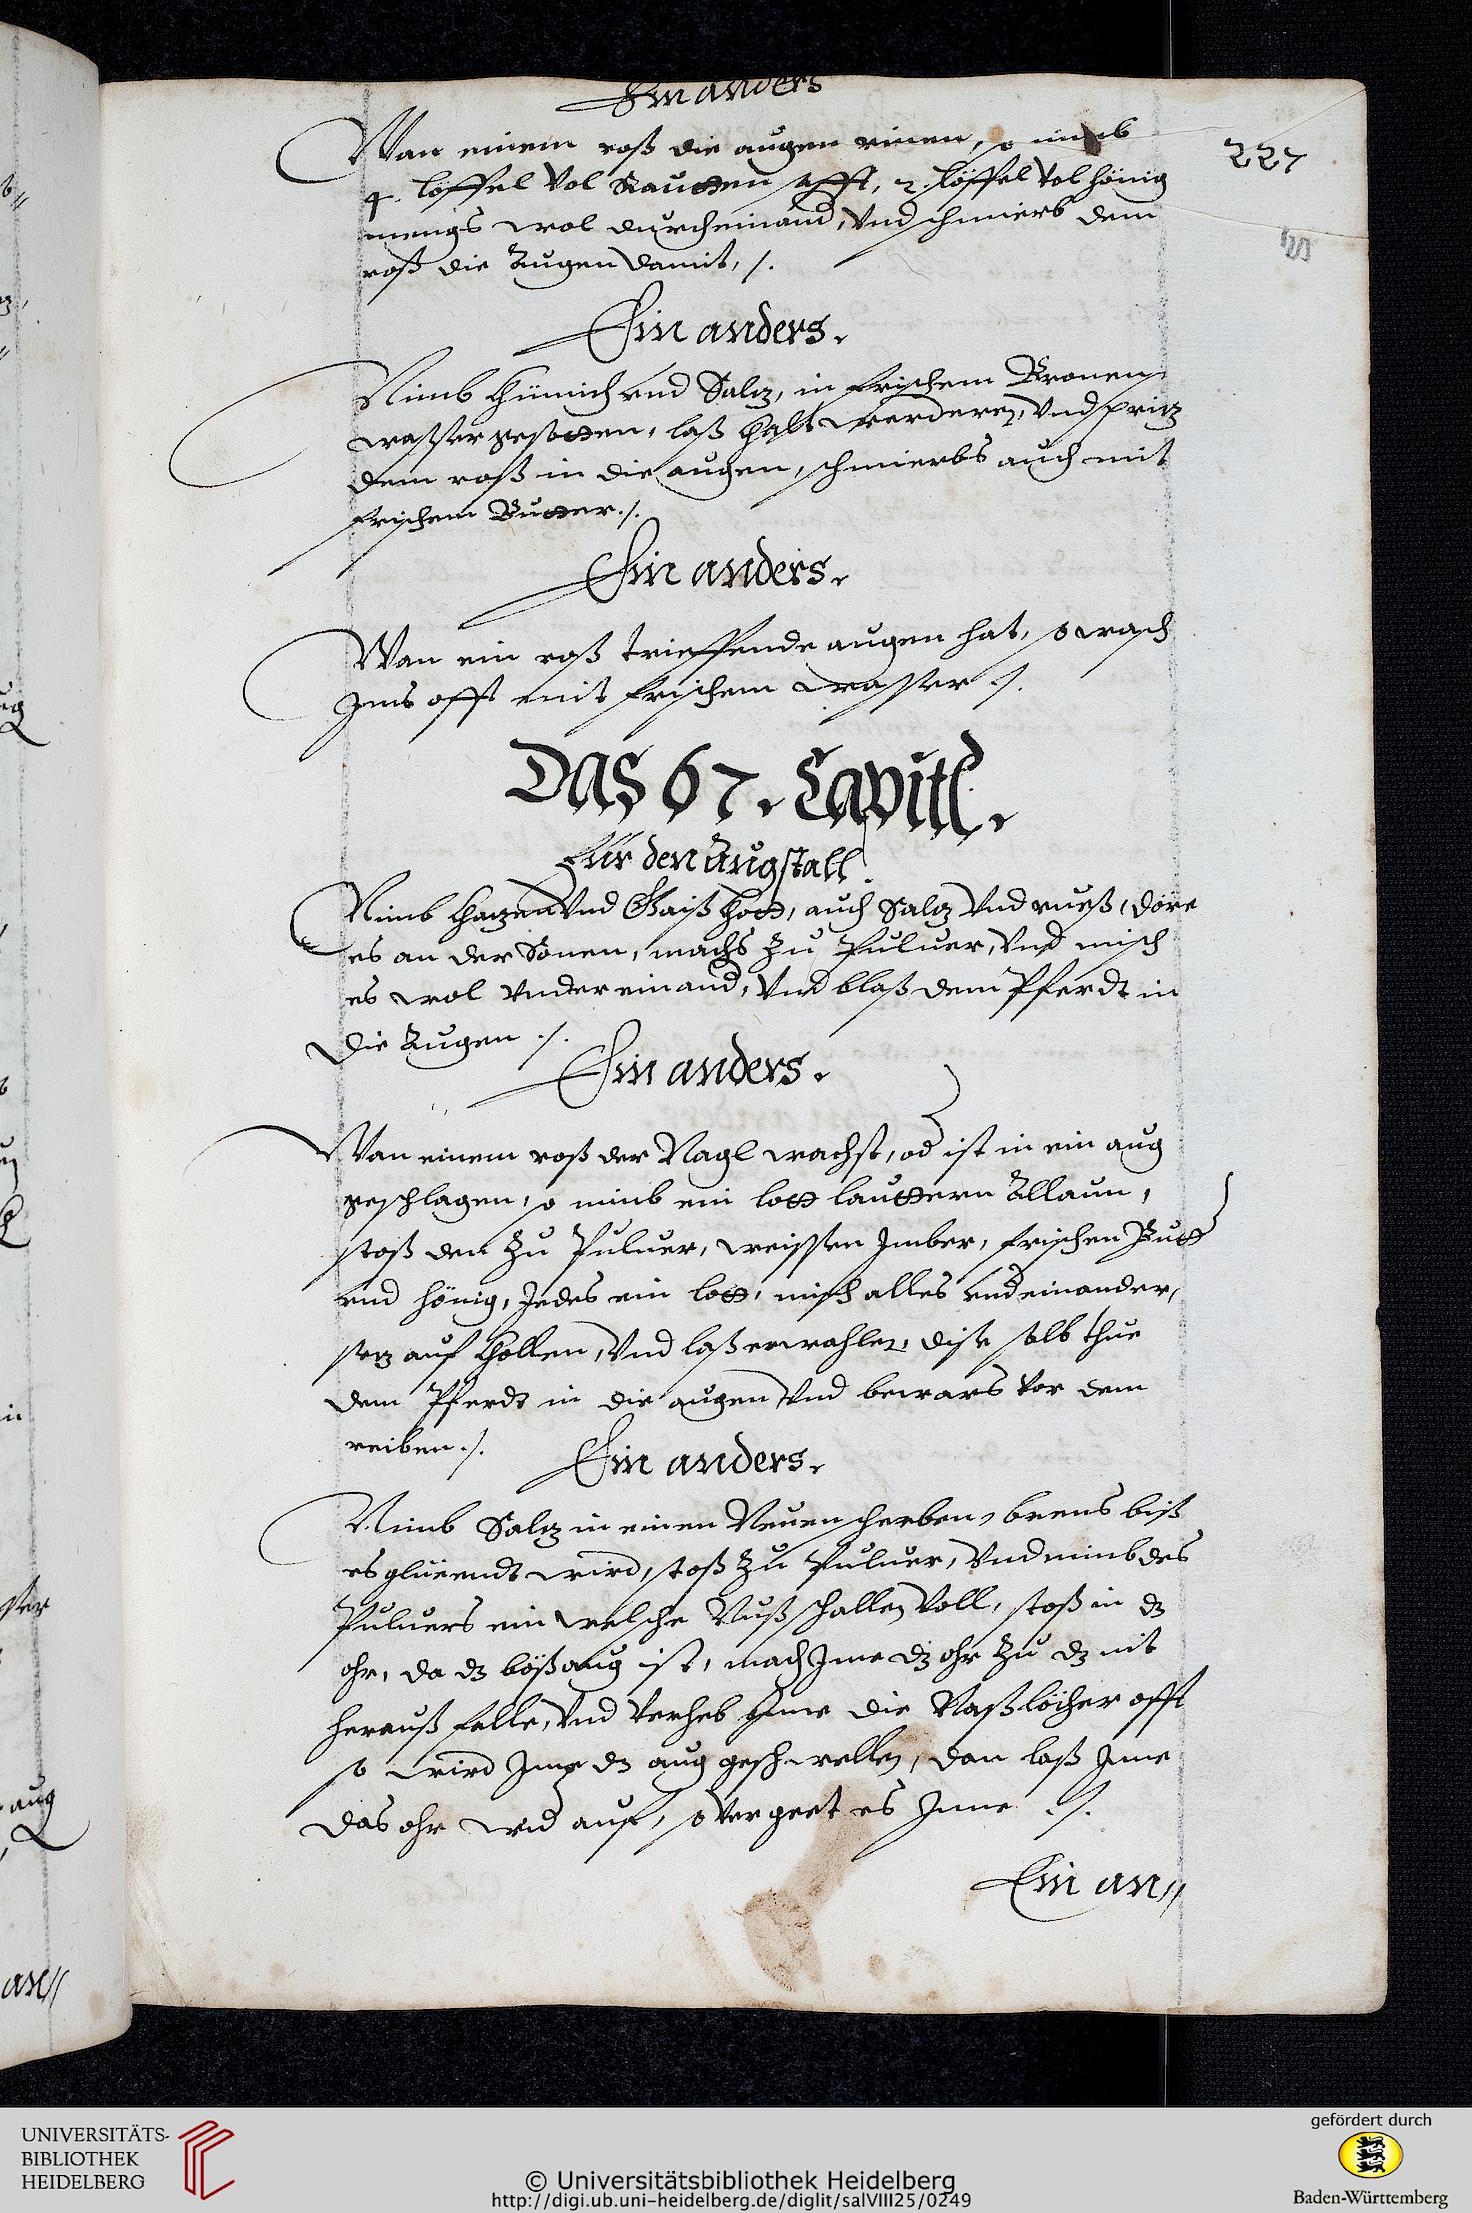 Ein anders
Wan einem roß die augen rinen, so nimb
227
4. löffel vol Rautten safft, 2. löffel vol hönig
mengs wol durcheinand, vnd schmierb dem
roß die Augen damit ./.
Ein anders.
Nimb Khümich vnd Saltz, in frischem Bronen
wasser gesotten, laß khalt werden, vnd spritz
dem roß in die augen, schmierbs auch mit
frischem Butter ./.
Ein anders.
Wan ein roß trieffende augen hat, so wasch
Ims offt mit frischem wasser ./.
Das 67. Capitl.
Für den Augstall.
Nimb Khatzen vnd Gaiß khott, auch Saltz vnd rueß, döre
es an der Sonen, machs zu Puluer, vnd misch
es wol vndereinand, vnd blaß dem Pferdt in
die Augen ./.
Ein anders.
Wan einem roß der Nagl wachst, od ist in ein aug
geschlagen, so nimb ein lott lauttern Allaun,
stoß den zu Puluer, weissen Imber, frischen Butt
vnd hönig, Jedes ein lott, misch alles vndeinander,
setz auf khollen, vnd laß erwahlen, dise salb thue
dem Pferdt in die augen vnd bewars vor dem
reiben ./.
Ein anders.
Nimb Saltz in einen Neuen scherben, brens biß
es glüeendt wird, stoß zu Puluer, vnd nimb des
Puluers ein welsche Nußschallen voll, stoß in dz
ohr, da dz böß aug ist, mach Jme dz ohr zu dz nit
herauß falle, vnd verheb Jme die Naßlöcher offt
so wird Jme dz aug geschwellen, dan laß Jme
das ohr wid auf, so vergeet es Jme ./.
Ein an//
UNIVERSITÄTS-
BIBLIOTHEK
HEIDELBERG
© Universitätsbibliothek Heidelberg
http://digi.ub.uni-heidelberg.de/diglit/salVIII25/0249
gefördert durch
Baden-Württemberg